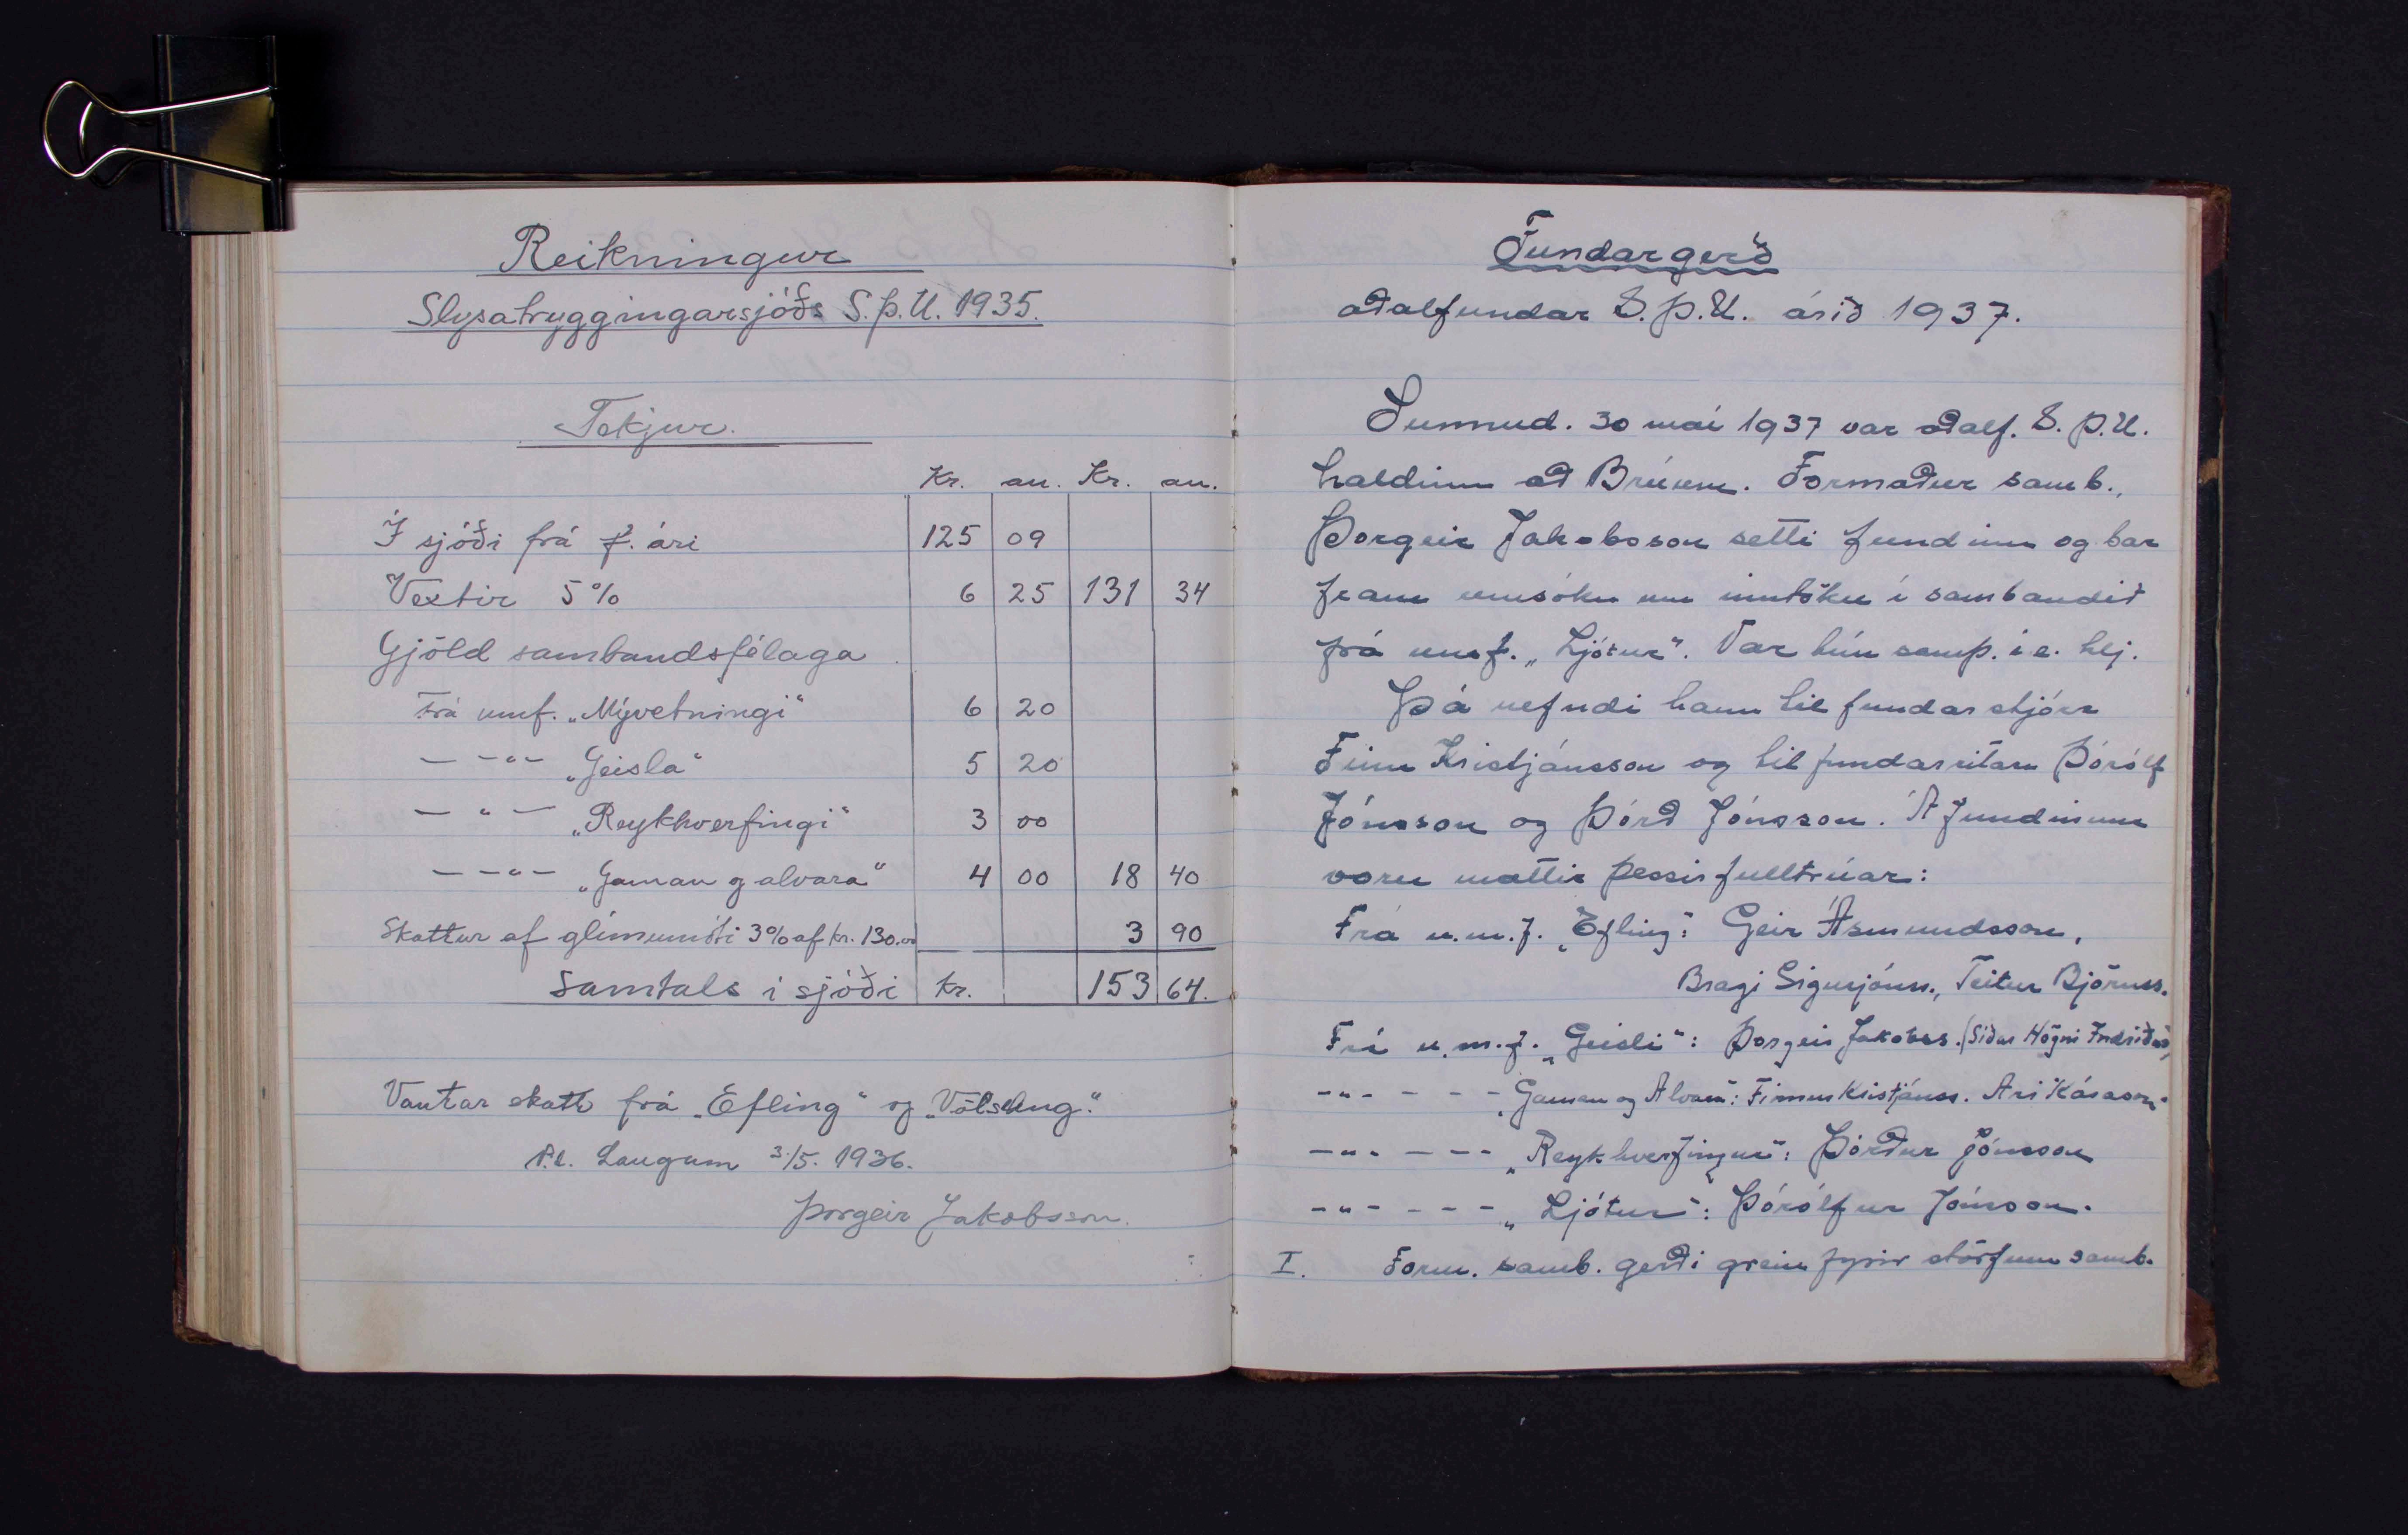 Reikningur
Slysatryggingarsjóðs S.Þ.U. 1935.
Tekjur.
Kr. au. Kr. au.
Í sjóði frá f. ári 125 09
Vextir 5% 6 25 131 34
Gjöld sambandsfélaga
Frá umf. „Mývetningi" 6 20
— -"- „Geisla" 5 20
— " — „Reykhverfingi" 3 00
— -"- „Gaman og alvara" 4 00 18 40
Skattur af glímumóti 3% af kr. 130.00 3 90
Samtals í sjóði kr. 153 64.
Vantar skatt frá „Efling" og „Völsung".
P.t. Laugum 3/5. 1936.
Þorgeir Jakobsson.
Fundargerð
aðalfundar S.Þ.U. árið 1937.
Sunnud. 30 maí 1937 var aðalf. S.Þ.U.
haldinn að Brúum. Formaður samb.,
Þorgeir Jakobsson setti fundinn og bar
fram umsókn um inntöku í sambandið
frá umf. „Ljótur". Var hún samþ. í e. hlj.
Þá nefndi hann til fundarstjóra
Finn Kristjánsson og til fundarritara Þórólf
Jónsson og Þórð Jónsson. Á fundinum
voru mættir þessir fulltrúar:
Frá u.m.f. „Efling": Geir Ásmundsson,
Bragi Sigurjónss., Teitur Björnss.
Frá u.m.f. „Geisli": Þorgeir Jakobss. (Síðar Högni Indriðas)
-"- - - - „Gaman og Alvara": Finnur Kristjánss. Ari Kárason.
-"- - - - „Reykhverfingur": Þórður Jónsson
-"- - - - „Ljótur": Þórólfur Jónsson.
I. Form. samb. gerði grein fyrir störfum samb.